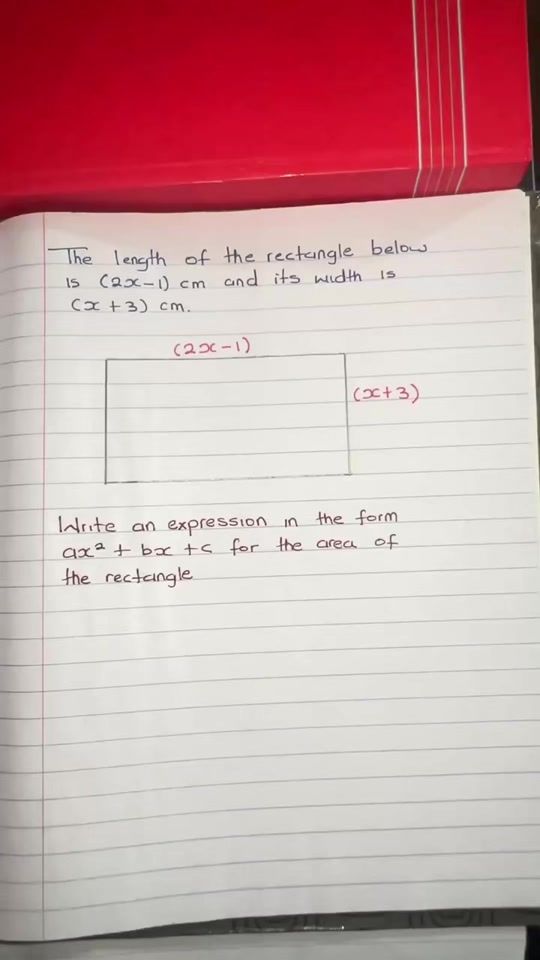 The length of the rectangle below
is (2x-1) cm and its width is
(x+3) cm.
(2x-1)
(x+3)
Write an expression in the form
ax² + bx + c for the area of
the rectangle